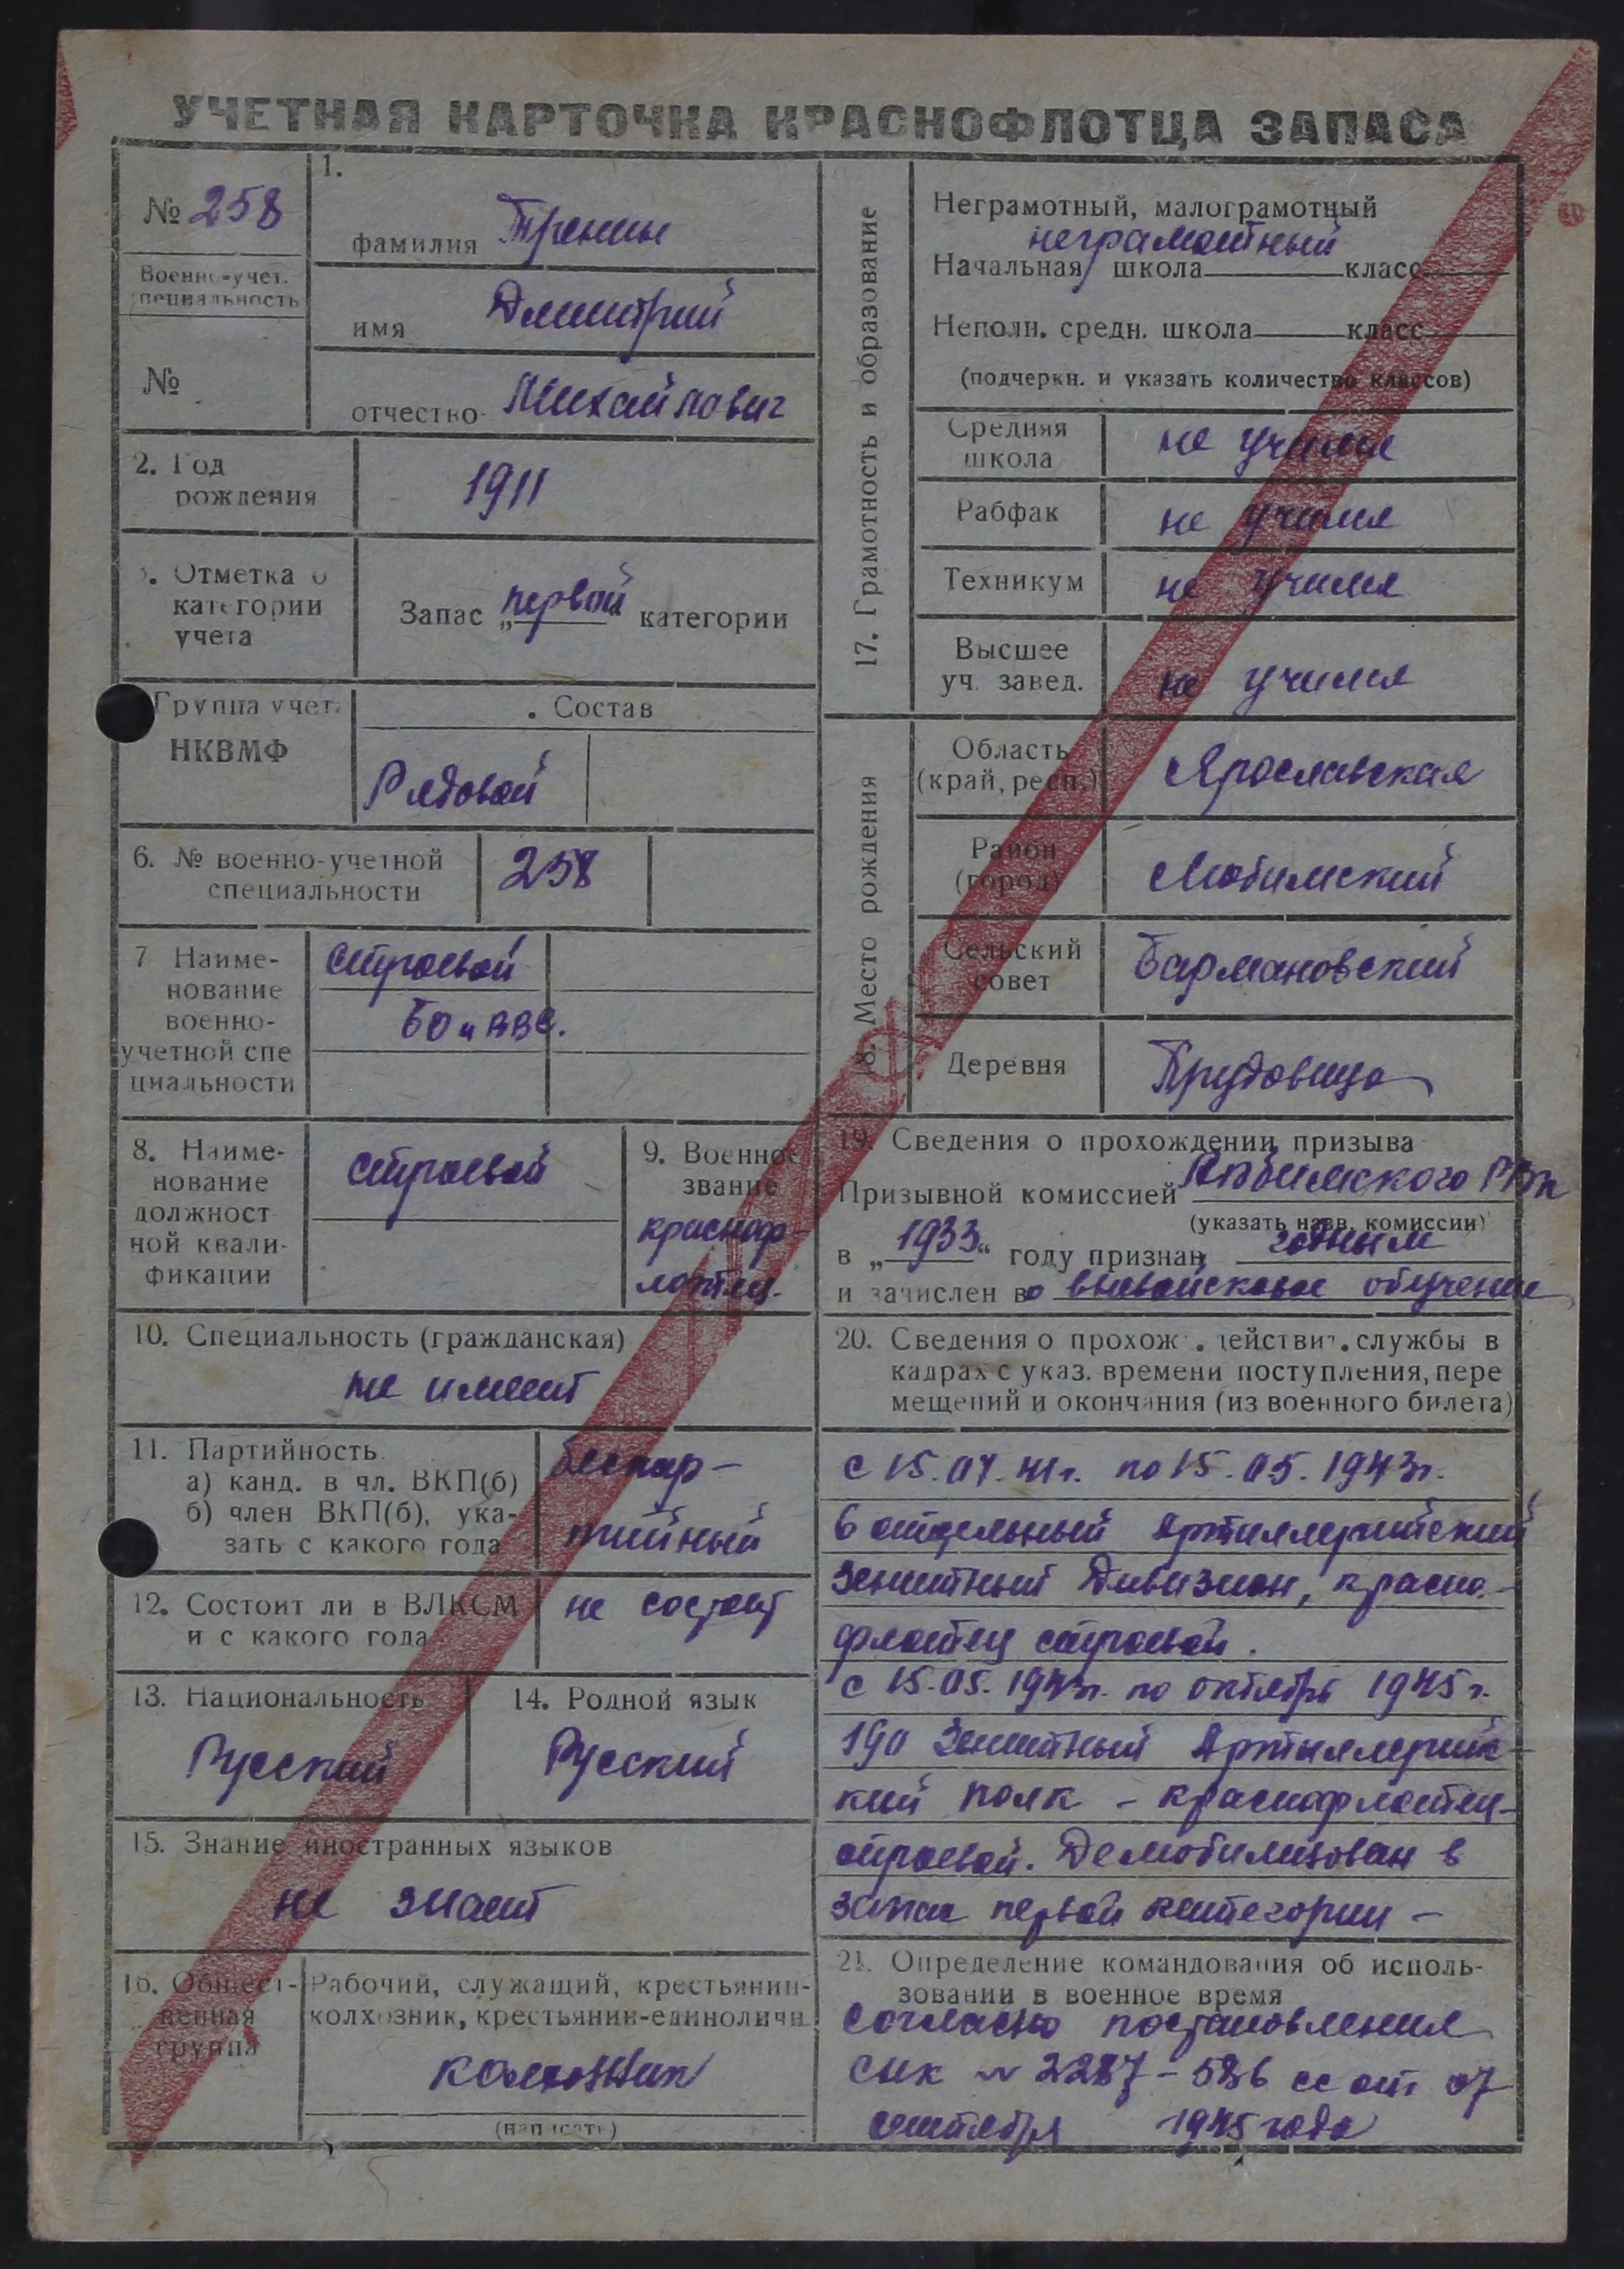 УЧЕТНАЯ КАРТОЧКА КРАСНОФЛОТЦА ЗАПАСА
№ 258
Военно-учет.
специальность
№
1.
фамилия Тренин
имя Дмитрий
отчество Михайлович
2. Год
рождения
1911
3. Отметка о
категории
учета
Запас „первой“ категории
Группа учета
НКВМФ
Состав
Рядовой
6. № военно-учетной
специальности
258
7 Наиме-
нование
военно-
учетной спе
циальности
строевой
БО и ВВС.
8. Наиме-
нование
должност
ной квали-
фикации
строевой
9. Военное
звание
красноф-
лотец.
10. Специальность (гражданская)
не имеет
11. Партийность
а) канд. в чл. ВКП(б)
б) член ВКП(б), ука-
зать с какого года
беспар-
тийный
12. Состоит ли в ВЛКСМ
и с какого года
не состоит
13. Национальность
Русский
14. Родной язык
Русский
15. Знание иностранных языков
не знает
16. Общест-
венная
группа
Рабочий, служащий, крестьянин-
колхозник, крестьянин-единоличн.
колхозник
(написать)
17. Грамотность и образование
Неграмотный, малограмотный
неграмотный
Начальная школа класс
Неполн. средн. школа класс
(подчеркн. и указать количество классов)
Средняя
школа
не учился
Рабфак
не учился
Техникум
не учился
Высшее
уч. завед.
не учился
18. Место рождения
Область
(край, респ.)
Ярославская
Район
(город)
Любимский
Сельский
совет
Бармановский
Деревня
Прудовица
19. Сведения о прохождении призыва
Призывной комиссией Любимского РВк
(указать назв. комиссии)
в „1933“ году признан годным
и зачислен во вневойсковое обучение
20. Сведения о прохож. действит. службы в
кадрах с указ. времени поступления, пере
мещений и окончания (из военного билета)
с 15.07.41г. по 15.05.1943г.
6 отдельный Артиллерийский
зенитный Дивизион, красно-
флотец строевой.
с 15.05.1943г. по октябрь 1945 г.
190 Зенитный Артиллерийс-
кий полк - краснофлотец-
строевой. Демобилизован в
запас первой категории -
21. Определение командования об исполь-
зовании в военное время
Согласно постановления
СНК № 2287-586 сс от 07
сентября 1945 года